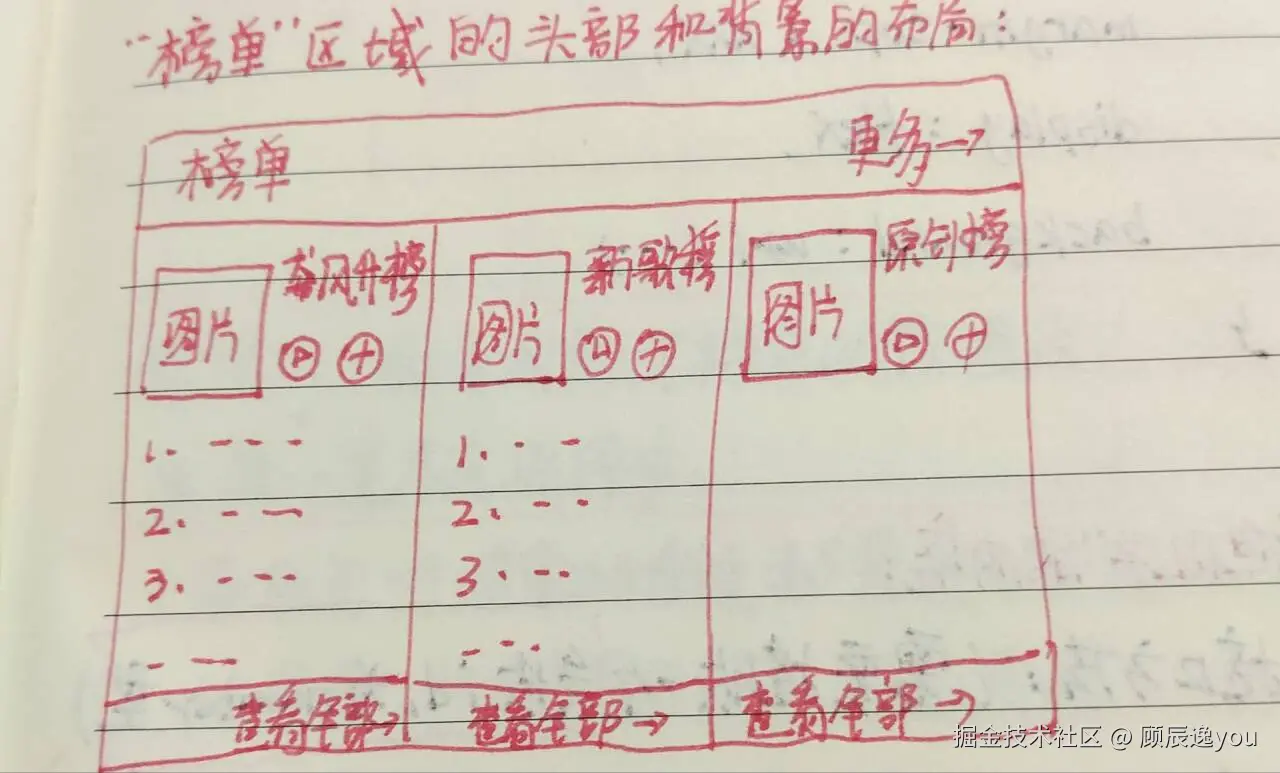 “榜单”区域的头部和背景的布局：
榜单 更多→
飙风升榜 新歌榜 原创榜
图片 图片 图片
1. 1.
2. 2.
3. 3.
查看全部→ 查看全部→ 查看全部→
掘金技术社区 @ 顾辰逸you